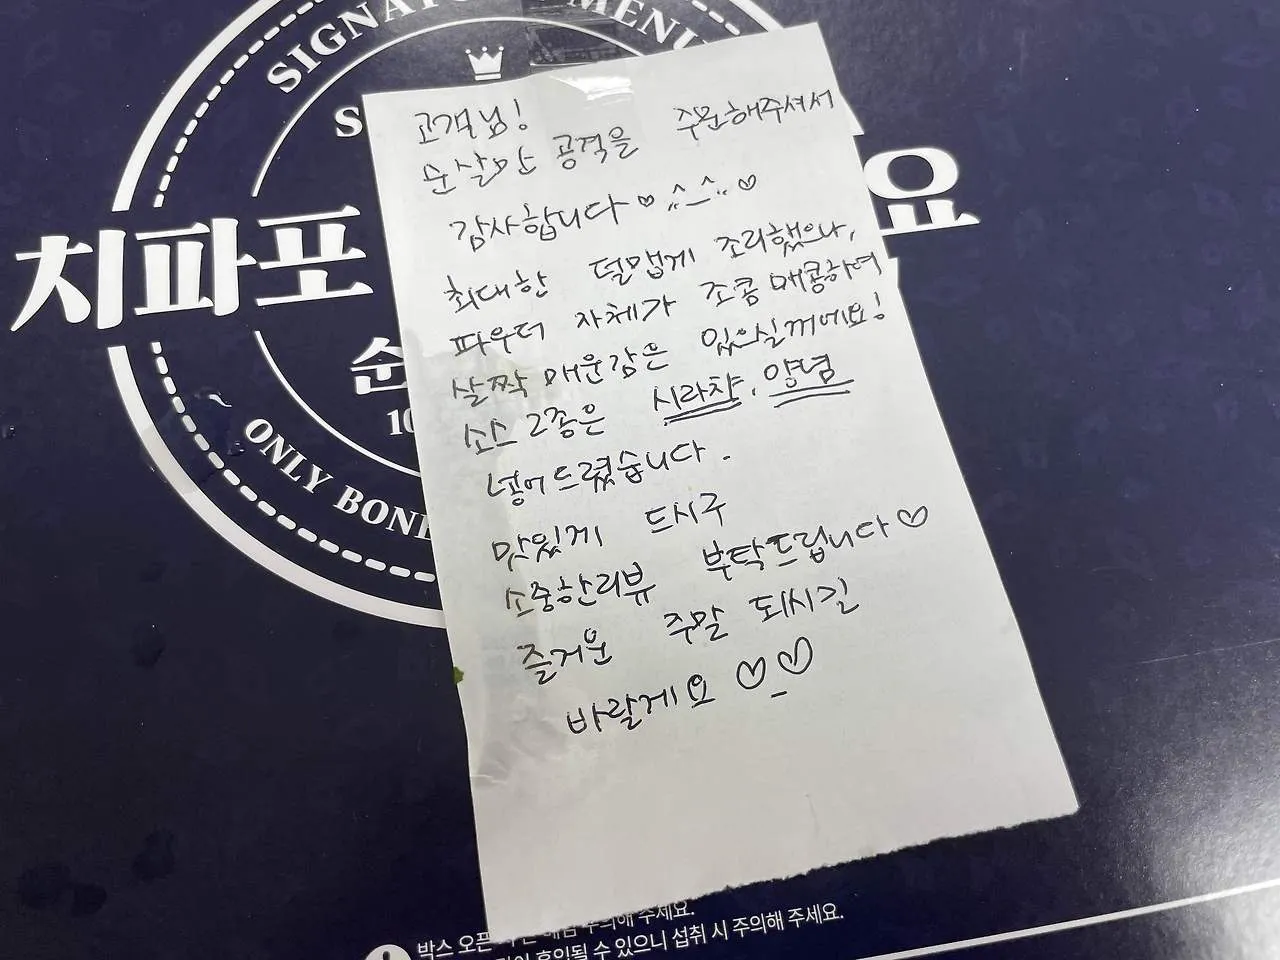 SIGNAT MENU
S
치파포 요
순
10
ONLY BON
고객님!
순살만 공격을 주문해주셔서
감사합니다♡ ^ㅅ^ ♡
최대한 덜맵게 조리했으나,
파우더 자체가 조콤 매콤하여
살짝 매운감은 있으실꺼에요!
소스 2종은 시라챠, 양념
넣어드렸습니다.
맛있게 드시구
소중한리뷰 부탁드립니다♡
즐거운 주말 되시길
바랄게요 ♡_♡
박스 오픈 주의해 주세요.
혼입될 수 있으니 섭취 시 주의해 주세요.